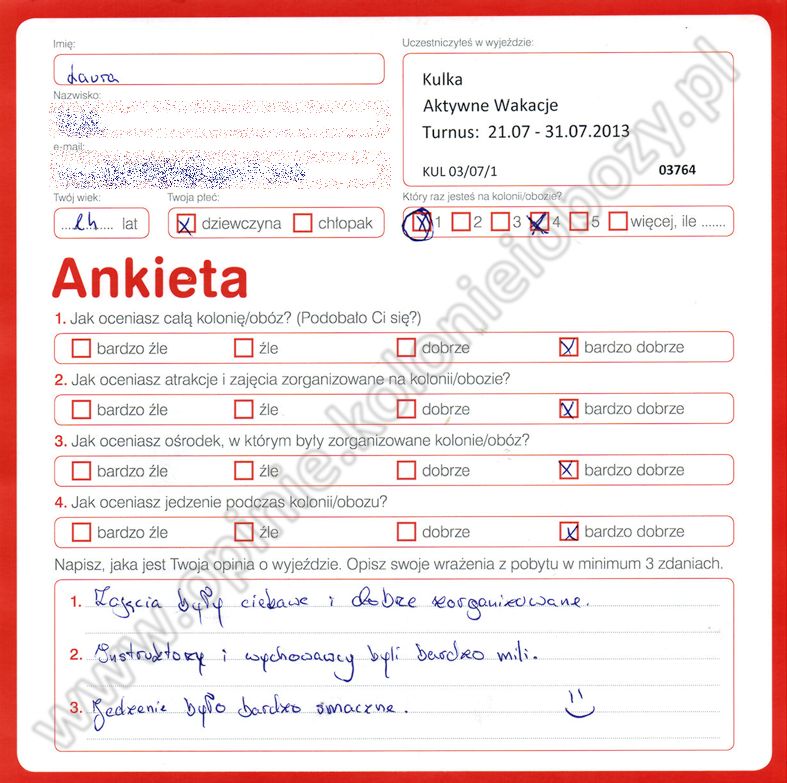 Imię:
Laura
Nazwisko:
e-mail:
Twój wiek:
lat
Twoja płeć:
x dziewczyna chłopak
Uczestniczyłeś w wyjeździe:
Kulka
Aktywne Wakacje
Turnus: 21.07 - 31.07.2013
KUL 03/07/1 03764
Który raz jesteś na kolonii/obozie?
x 1 2 3 x 4 5 więcej, ile .......
Ankieta
1. Jak oceniasz całą kolonię/obóz? (Podobało Ci się?)
bardzo źle źle dobrze x bardzo dobrze
2. Jak oceniasz atrakcje i zajęcia zorganizowane na kolonii/obozie?
bardzo źle źle dobrze x bardzo dobrze
3. Jak oceniasz ośrodek, w którym były zorganizowane kolonie/obóz?
bardzo źle źle dobrze x bardzo dobrze
4. Jak oceniasz jedzenie podczas kolonii/obozu?
bardzo źle źle dobrze x bardzo dobrze
Napisz, jaka jest Twoja opinia o wyjeździe. Opisz swoje wrażenia z pobytu w minimum 3 zdaniach.
1. Zajęcia były ciekawe i dobrze zorganizowane.
2. Instruktorzy i wychowawcy byli bardzo mili.
3. Jedzenie było bardzo smaczne.
www.opinie.kolonieiobozy.pl